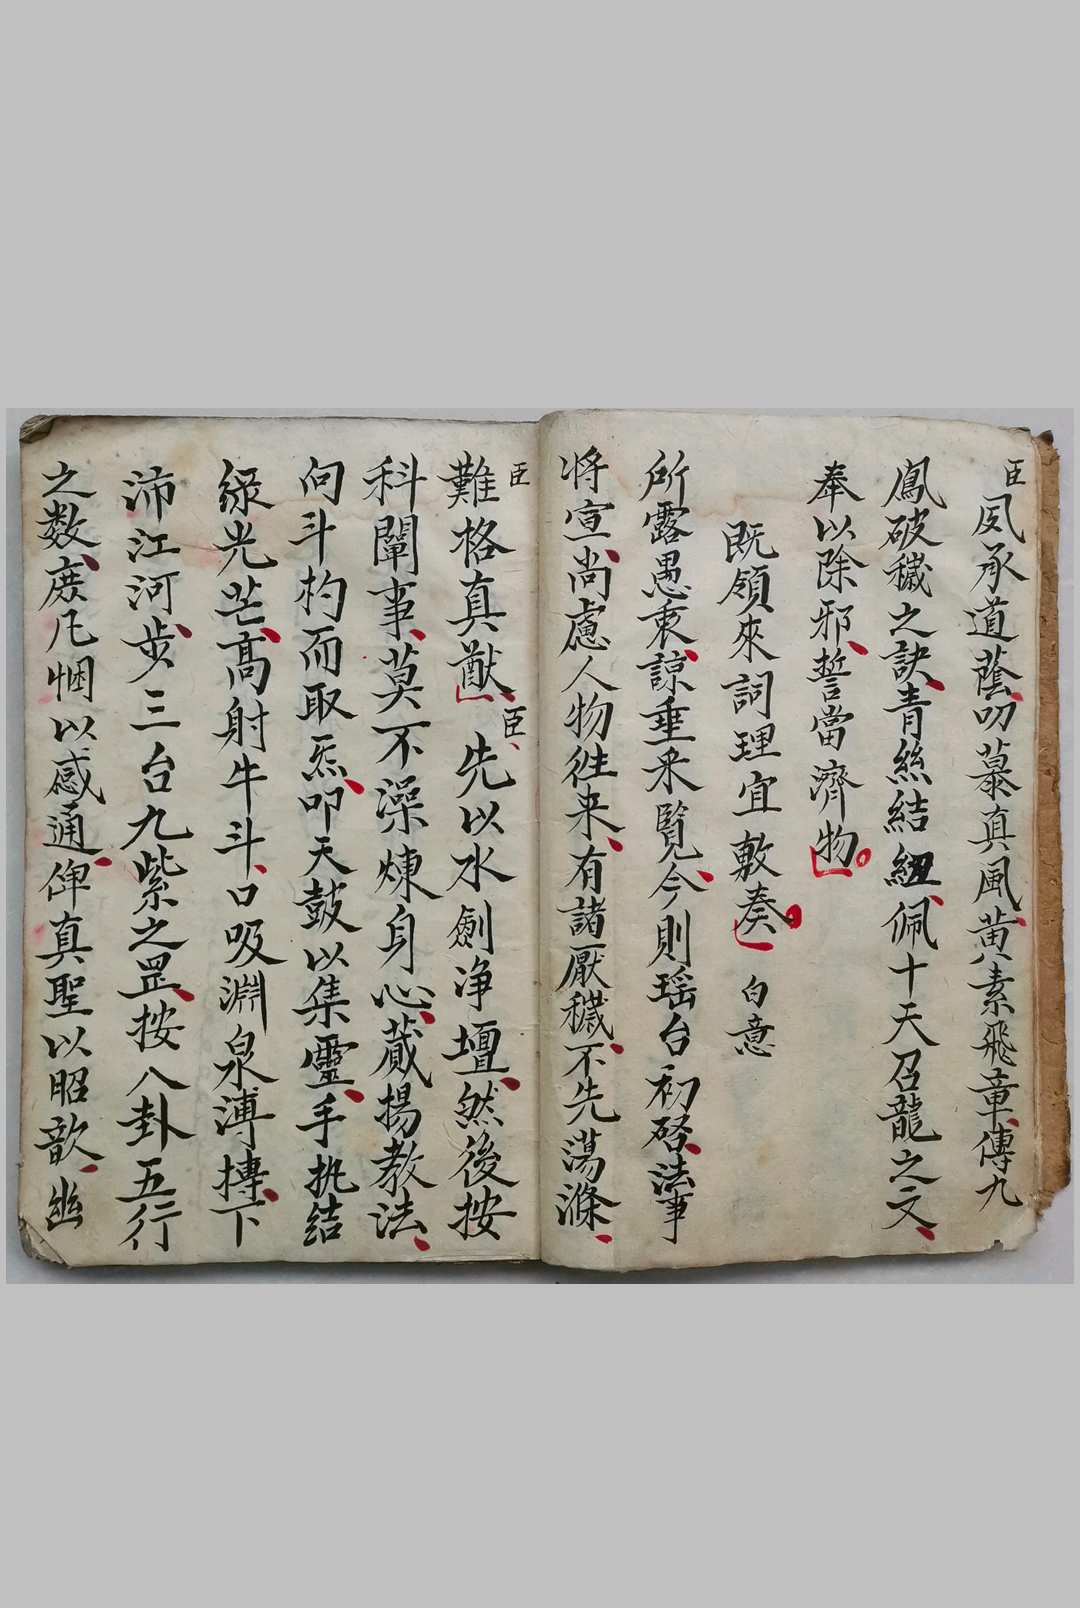 臣夙承道蔭叨慕真風黃素飛章傳九
鳳破穢之訣青絲結紐佩十天召龍之文
奉以除邪誓當濟物
既領來詞理宜敷奏　白意
所露愚衷諒垂采覽今則瑶台初啓法事
将宣尚慮人物徃来有諸厭穢不先蕩滌
難格真猷臣先以水劍净壇然後按
科闡事莫不澡煉身心蕆揚教法
向斗杓而取炁叩天鼓以集靈手执结
緑光芒高射牛斗口吸淵泉溥摶下
沛江河步三台九紫之罡按八卦五行
之数庶凡悃以感通俾真聖以昭歆幽